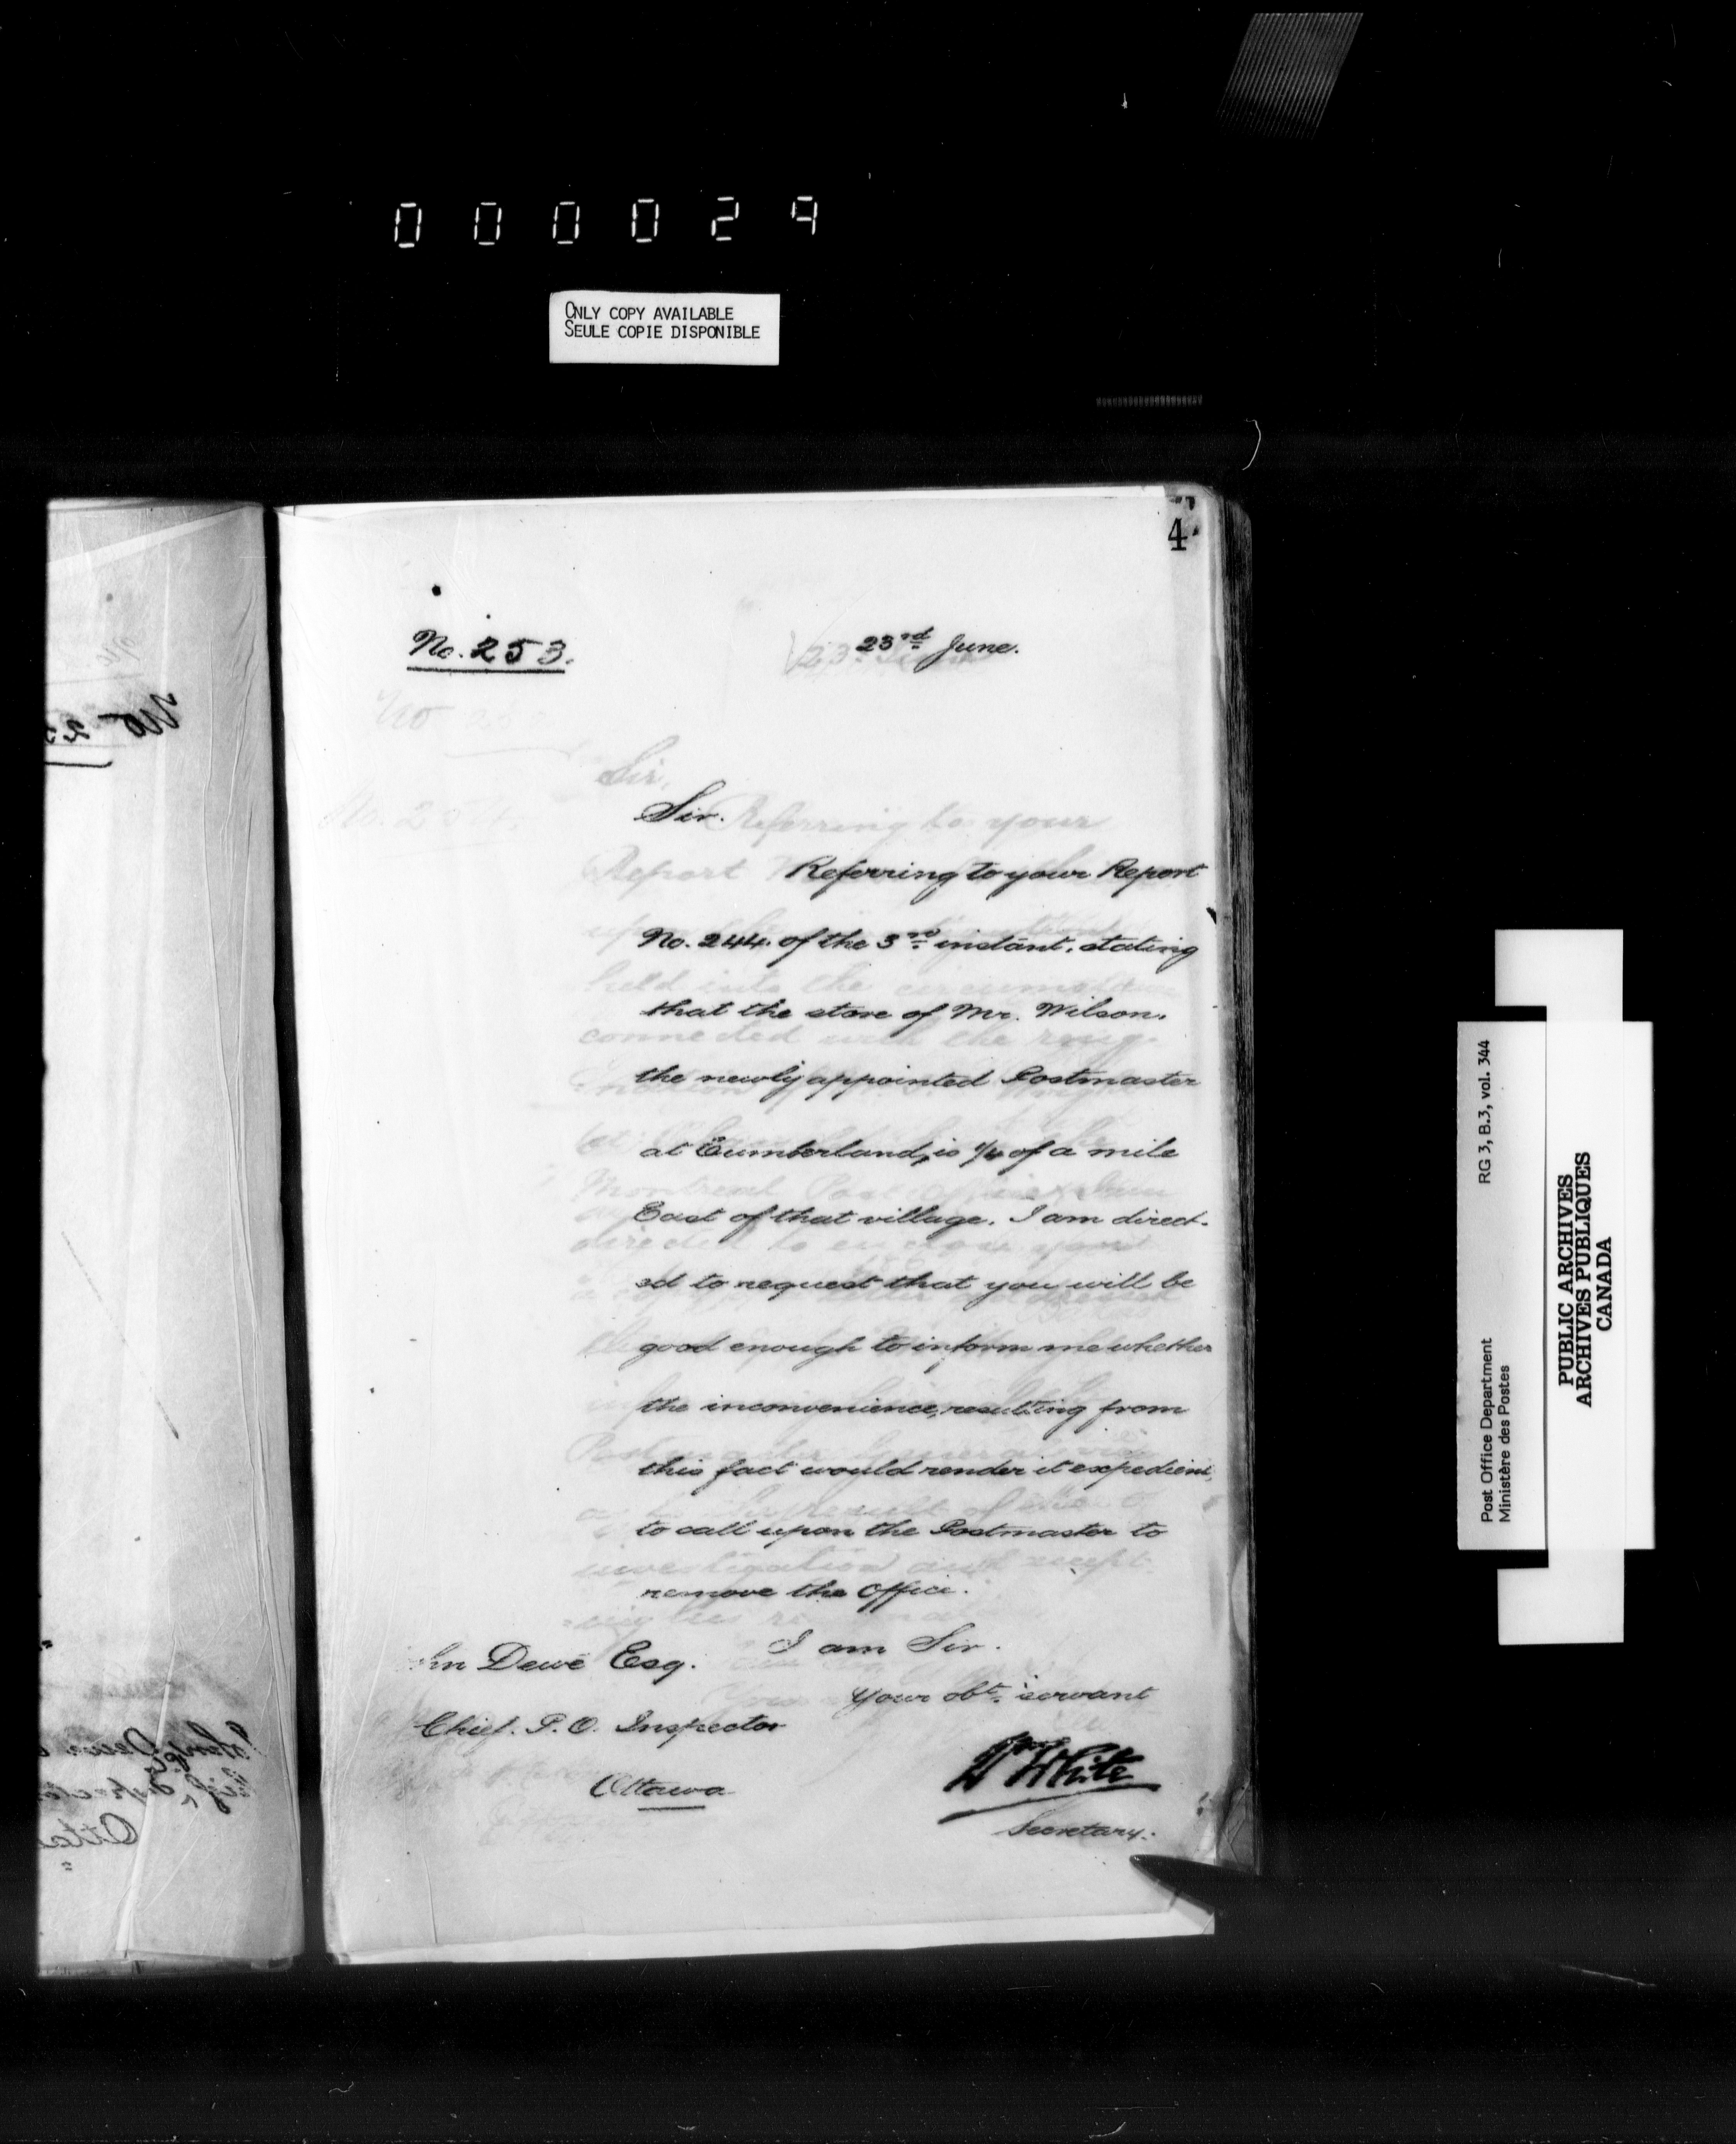 000029
ONLY COPY AVAILABLE
SEULE COPIE DISPONIBLE
4
No. 253.
23rd June.
Sir.
Referring to your Report
No. 244. of the 3rd instant, stating
that the store of Mr. Wilson.
the newly appointed Postmaster
at Cumberland, is 1/4 of a mile
East of that village. I am direct-
ed to request that you will be
good enough to inform me whether
the inconvenience, resulting from
this fact would render it expedient,
to call upon the Postmaster to
remove the Office.
I am Sir.
hn Dewe Esq.
Your obt. servant
Chief. P. O. Inspector
Ottawa
Wm White
Secretary.
Post Office Department
Ministère des Postes
RG 3, B.3, vol. 344
PUBLIC ARCHIVES
ARCHIVES PUBLIQUES
CANADA